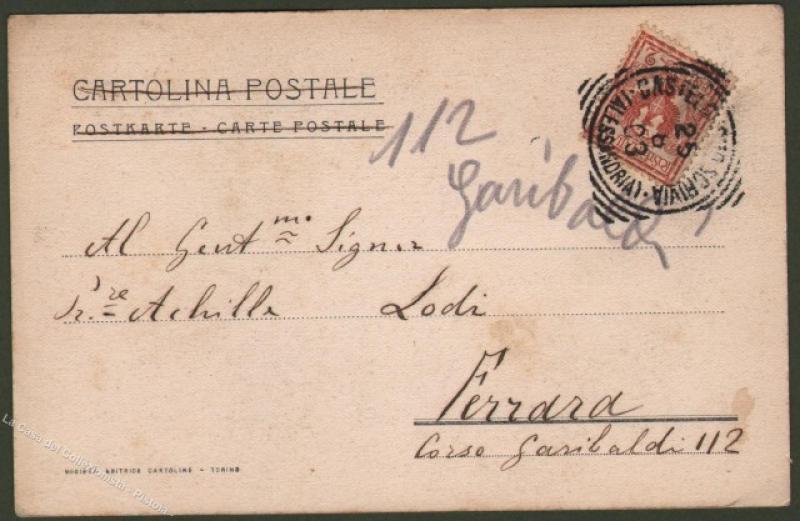 CARTOLINA POSTALE
POSTKARTE - CARTE POSTALE
112
Garibaldi
CASTELNUOVO SCRIVIA
(ALESSANDRIA)
25
8
03
Al Gentmo Signor
Achille Lodi
Ferrara
Corso Garibaldi 112
SOCIETÀ EDITRICE CARTOLINE - TORINO
La Casa del Collezionista - Pistoia